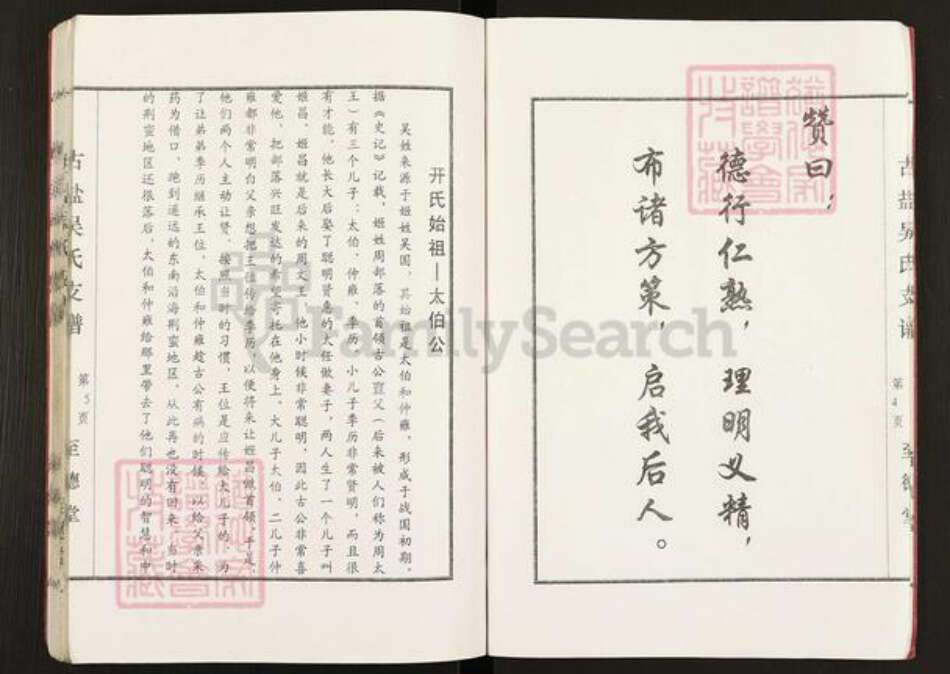 赞曰：
德行仁熟，理明义精，
布诸方策，启我后人。
古盐吴氏支谱
第4页
至德堂
开氏始祖—太伯公
吴姓来源于姬姓吴国，其始祖是太伯和仲雍，形成于战国初期。
据《史记》记载，姬姓周部落的首领古公亶父（后来被人们称为周太
王）有三个儿子：太伯、仲雍、季历。小儿子季历非常贤明，而且很
有才能，他长大后娶了聪明贤惠的太任做妻子，两人生了一个儿子叫
姬昌，姬昌就是后来的周文王。他小时候非常聪明，因此古公非常喜
爱他，把部落兴旺发达的希望寄托在他身上。大儿子太伯，二儿子仲
雍都非常明白父亲想把王位传给季历，以便将来让姬昌做首领，于是，
他们两个人主动让贤。按照当时的习惯，王位是应传给大儿子的，为
了让弟弟季历继承王位，太伯和仲雍趁古公有病的时候，以给父亲采
药为借口，跑到遥远的东南沿海荆蛮地区，从此再也没有回来。当时
的荆蛮地区还很落后，太伯和仲雍给那里带去了他们聪明的智慧和中
古盐吴氏支谱
第5页
至德堂
FamilySearch